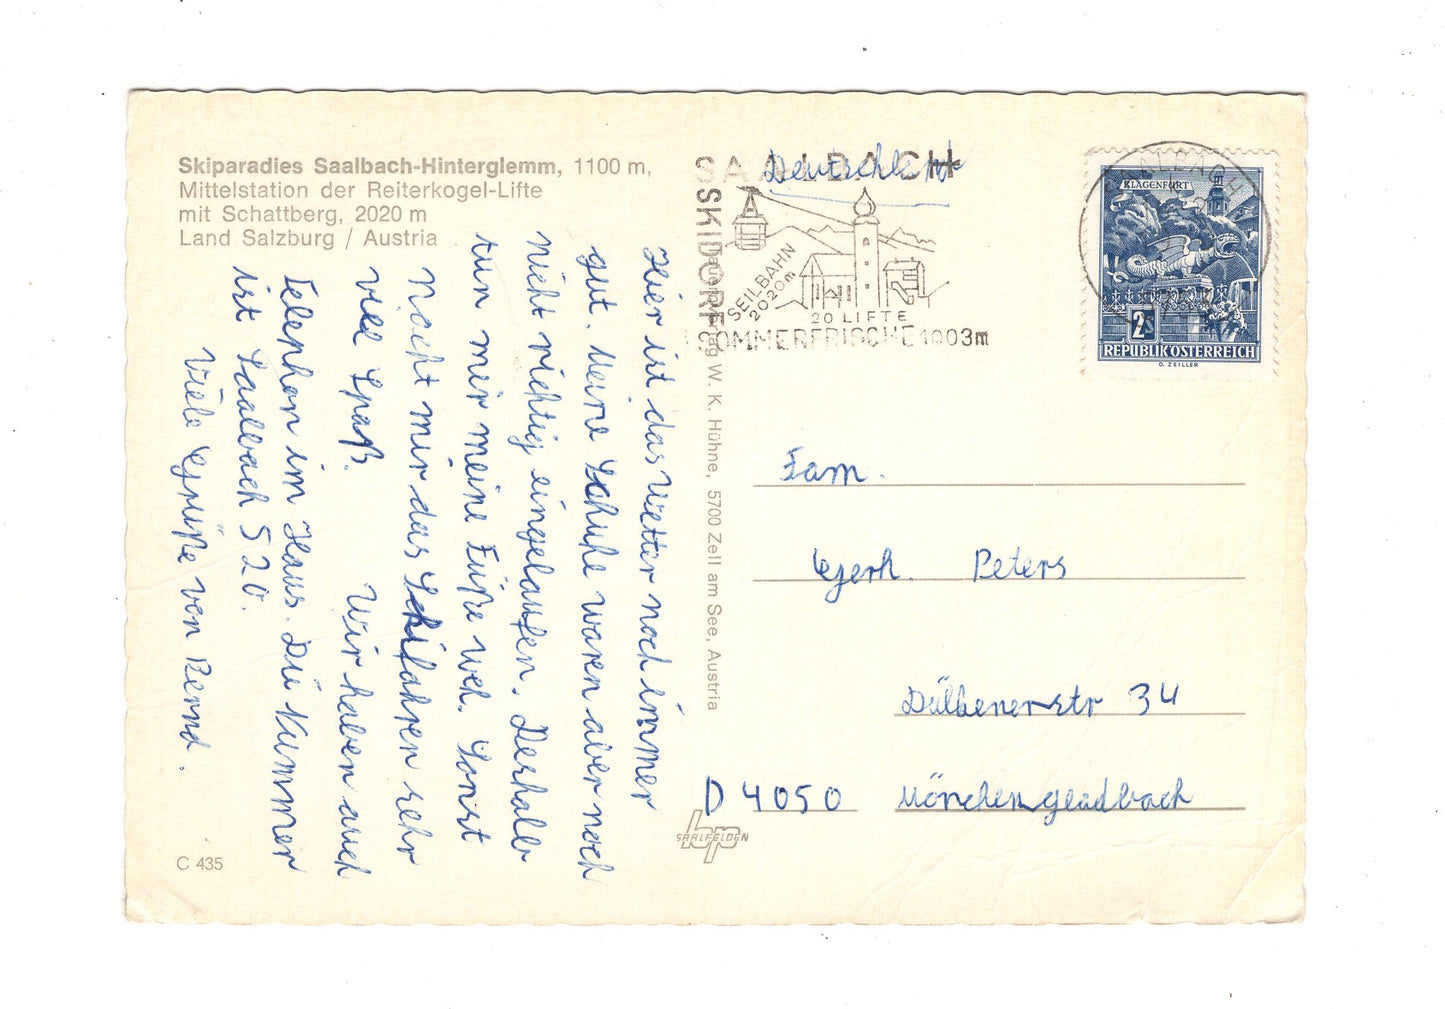 Skiparadies Saalbach-Hinterglemm, 1100 m,
Mittelstation der Reiterkogel-Lifte
mit Schattberg, 2020 m
Land Salzburg / Austria
Hier ist das Wetter noch immer
gut. Meine Schuhe waren aber noch
nicht richtig eingelaufen. Deshalb
tun mir meine Füße weh. Sonst
macht mir das Schifahren sehr
viel Spaß. Wir haben auch
Telephon im Haus. Die Nummer
ist Saalbach 520.
Viele Grüße von Bernd.
C 435
W. K. Hühne, 5700 Zell am See, Austria
SAALBACH
Deutschland
SKIDORF
SEILBAHN
2020m
20 LIFTE
SOMMERFRISCHE 1003m
KLAGENFURT
2S
REPUBLIK ÖSTERREICH
O. ZEILLER
Fam.
Gerh. Peters
Dülkenerstr 34
D 4050 Mönchengladbach
hp
SAALFELDEN